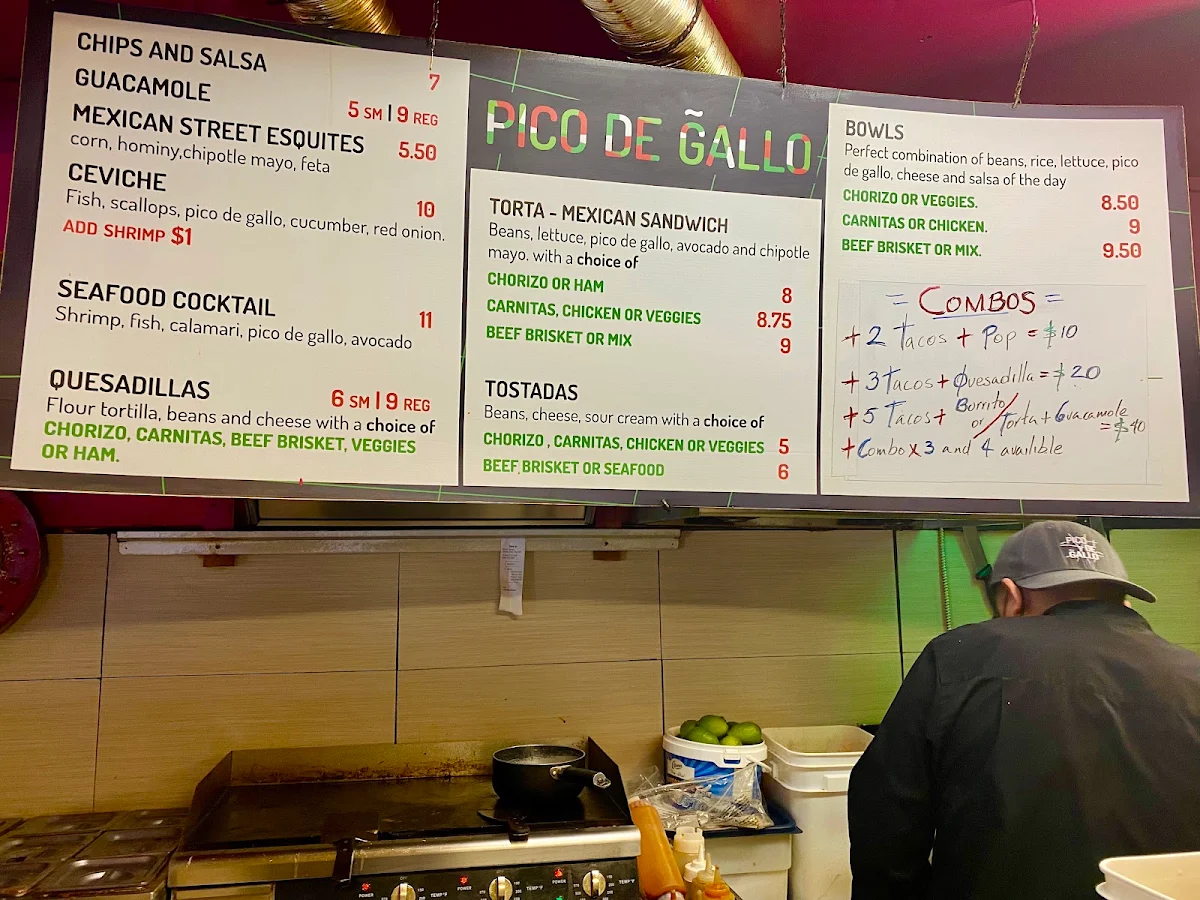 CHIPS AND SALSA 7
GUACAMOLE 5 SM | 9 REG
MEXICAN STREET ESQUITES 5.50
corn, hominy,chipotle mayo, feta
CEVICHE 10
Fish, scallops, pico de gallo, cucumber, red onion.
ADD SHRIMP $1
SEAFOOD COCKTAIL 11
Shrimp, fish, calamari, pico de gallo, avocado
QUESADILLAS 6 SM | 9 REG
Flour tortilla, beans and cheese with a choice of
CHORIZO, CARNITAS, BEEF BRISKET, VEGGIES
OR HAM.
PICO DE G̃ALLO
TORTA - MEXICAN SANDWICH
Beans, lettuce, pico de gallo, avocado and chipotle
mayo. with a choice of
CHORIZO OR HAM 8
CARNITAS, CHICKEN OR VEGGIES 8.75
BEEF BRISKET OR MIX 9
TOSTADAS
Beans, cheese, sour cream with a choice of
CHORIZO , CARNITAS, CHICKEN OR VEGGIES 5
BEEF BRISKET OR SEAFOOD 6
BOWLS
Perfect combination of beans, rice, lettuce, pico
de gallo, cheese and salsa of the day
CHORIZO OR VEGGIES. 8.50
CARNITAS OR CHICKEN. 9
BEEF BRISKET OR MIX. 9.50
= COMBOS =
+ 2 Tacos + Pop = $10
+ 3 Tacos + Quesadilla = $20
+ 5 Tacos + Burrito or / Torta + Guacamole = $40
+ Combo x 3 and 4 availible
PICO
DE
GALLO
POWER TEMP °F POWER TEMP °F POWER TEMP °F